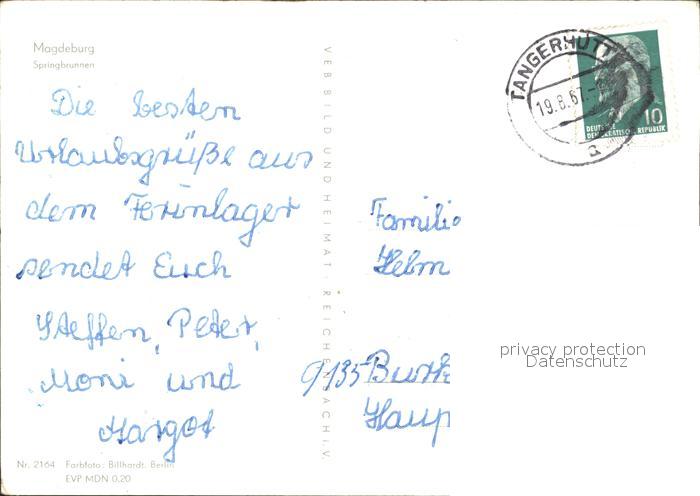 Magdeburg
Springbrunnen
Die besten
Urlaubsgrüße aus
dem Ferienlager
sendet Euch
Steffen, Peter,
Moni und
Margot
Nr. 2164 Farbfoto: Billhardt, Berlin
EVP MDN 0,20
VEB BILD UND HEIMAT · REICHENBACH I.V.
TANGERHÜTT
19.8.67
a
10
DEUTSCHE
DEMOKRATISCHE REPUBLIK
Familie
Helm
9135 Burk
Haup
privacy protection
Datenschutz